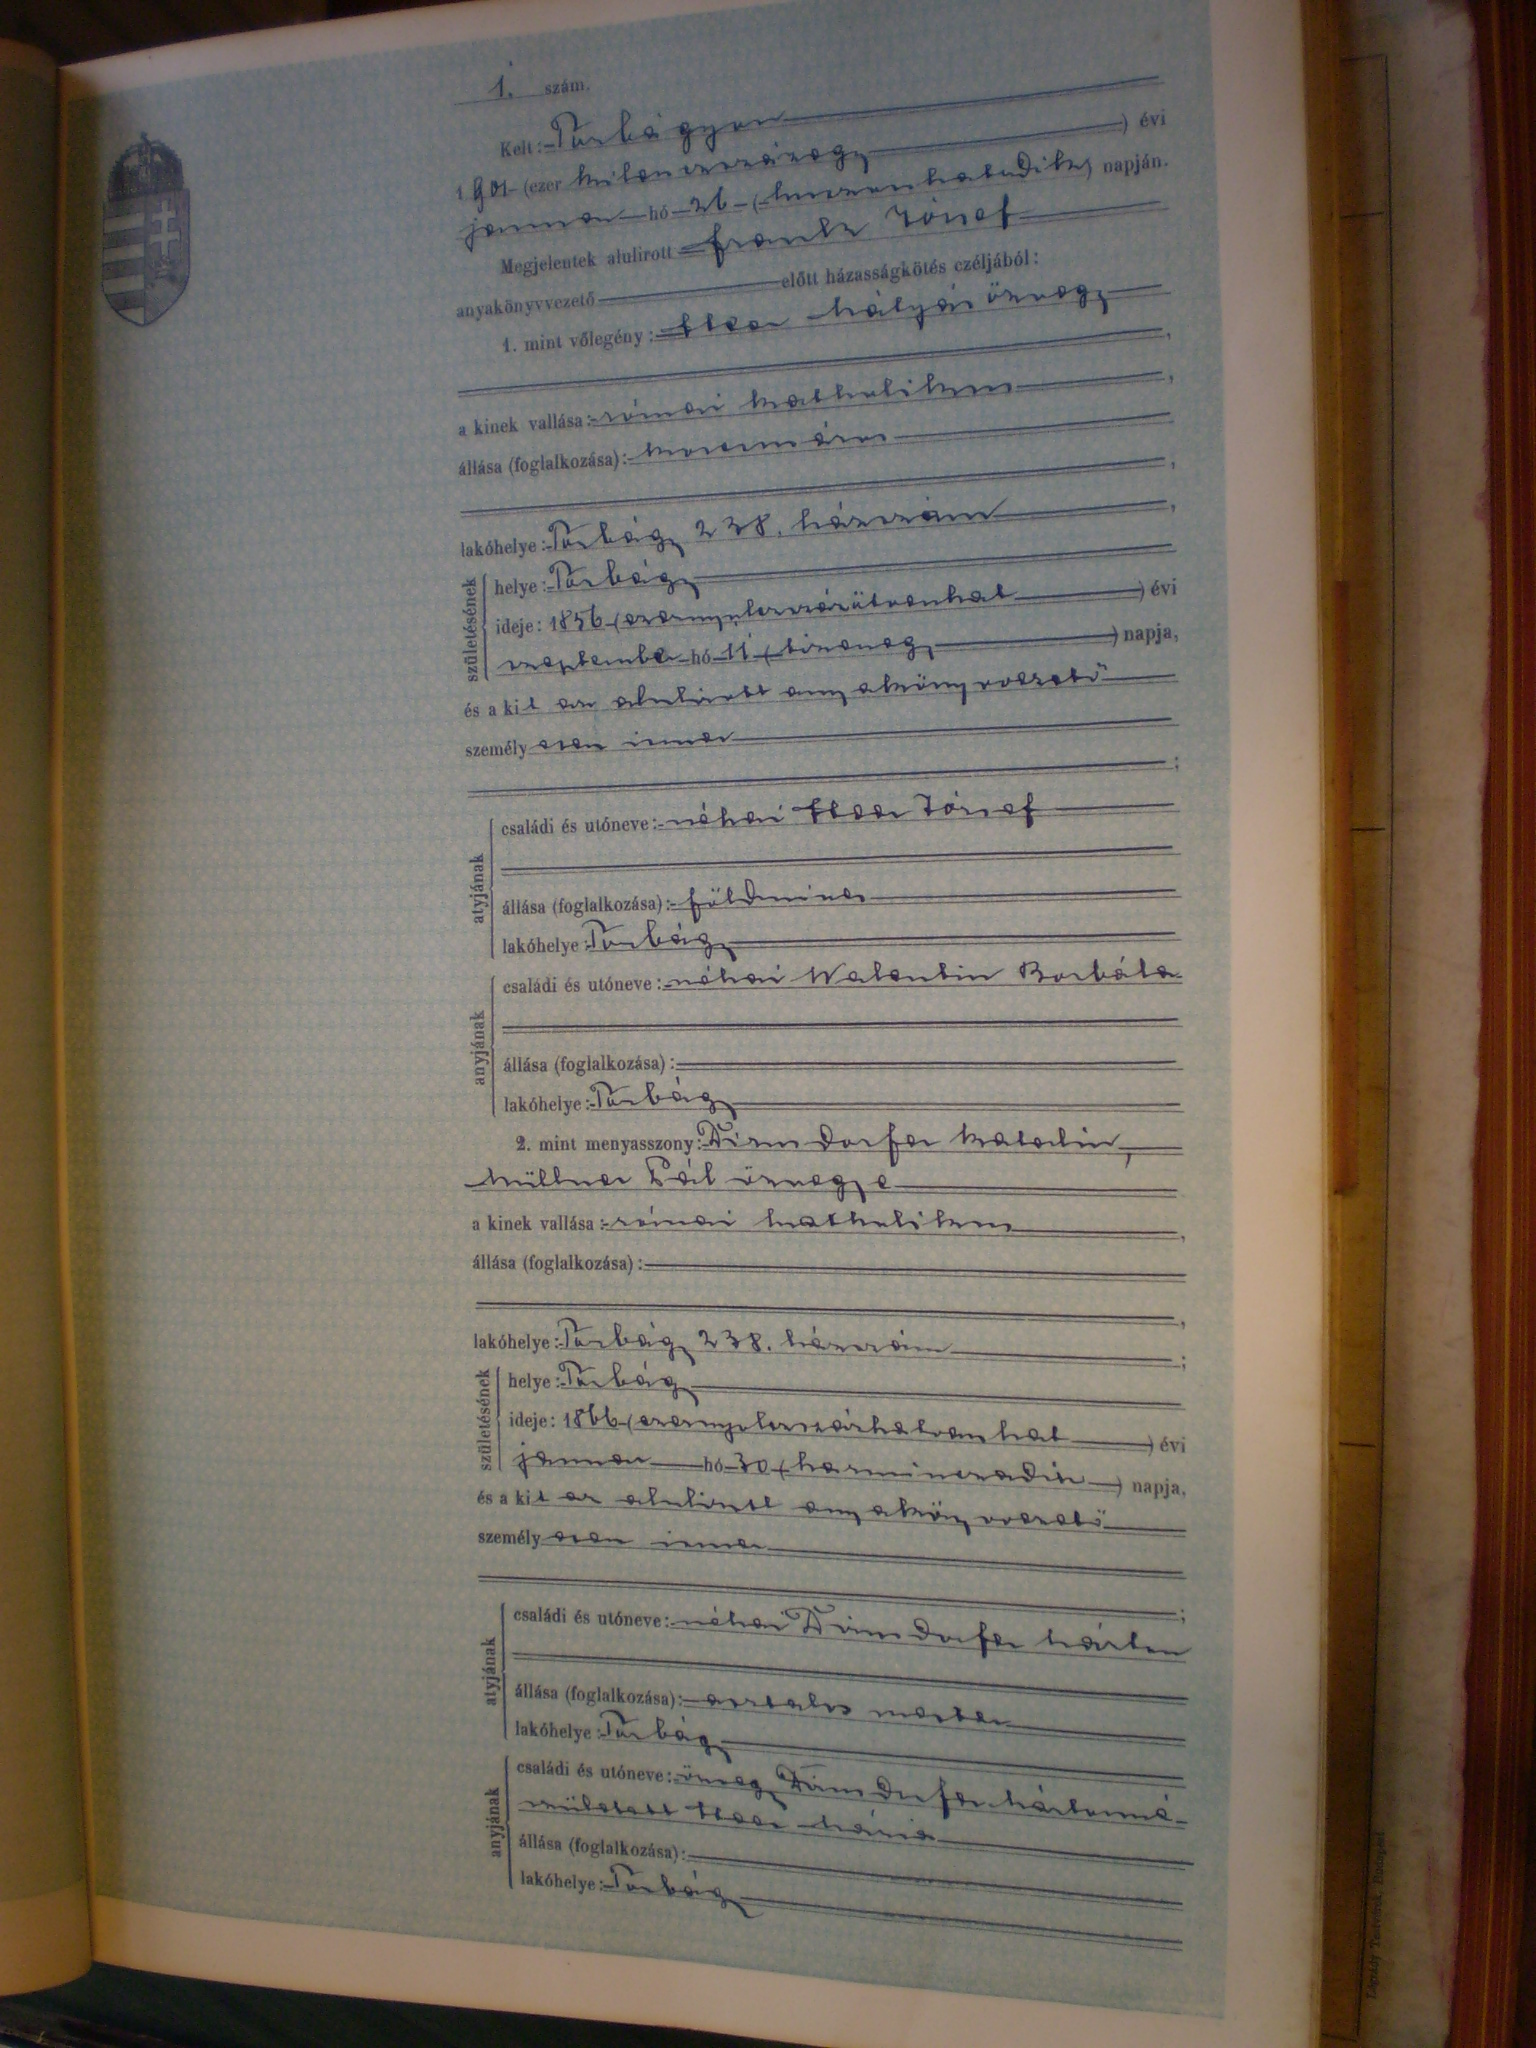 1. szám.
Kelt: Torbágyon
1901 (ezer kilenczszázegy) évi
január hó 26 (huszonhatodik) napján.
Megjelentek alulirott Frank József
anyakönyvvezető előtt házasságkötés czéljából:
1. mint vőlegény: Ebner Mátyás özvegy
a kinek vallása: római katholikus
állása (foglalkozása): kocsmáros
lakóhelye: Torbágy 238. házszám
születésének
helye: Torbágy
ideje: 1856 (ezernyolczszázötvenhat) évi
szeptember hó 11 (tizenegy) napja,
és a kit az alulirott anyakönyvvezető
személyesen ismer
atyjának
családi és utóneve: néhai Ebner József
állása (foglalkozása): földmives
lakóhelye: Torbágy
anyjának
családi és utóneve: néhai Walentin Borbála
állása (foglalkozása):
lakóhelye: Torbágy
2. mint menyasszony: Dirndorfer Katalin,
Müllner Pál özvegye
a kinek vallása: római katholikus
állása (foglalkozása):
lakóhelye: Torbágy 238. házszám
születésének
helye: Torbágy
ideje: 1866 (ezernyolczszázhatvanhat) évi
január hó 30 (harminczadik) napja,
és a kit az alulirott anyakönyvvezető
személyesen ismer
atyjának
családi és utóneve: néhai Dirndorfer Márton
állása (foglalkozása): asztalos mester
lakóhelye: Torbágy
anyjának
családi és utóneve: özvegy Dirndorfer Mártonné
született Ebner Mária
állása (foglalkozása):
lakóhelye: Torbágy
Légrády Testvérek, Budapest